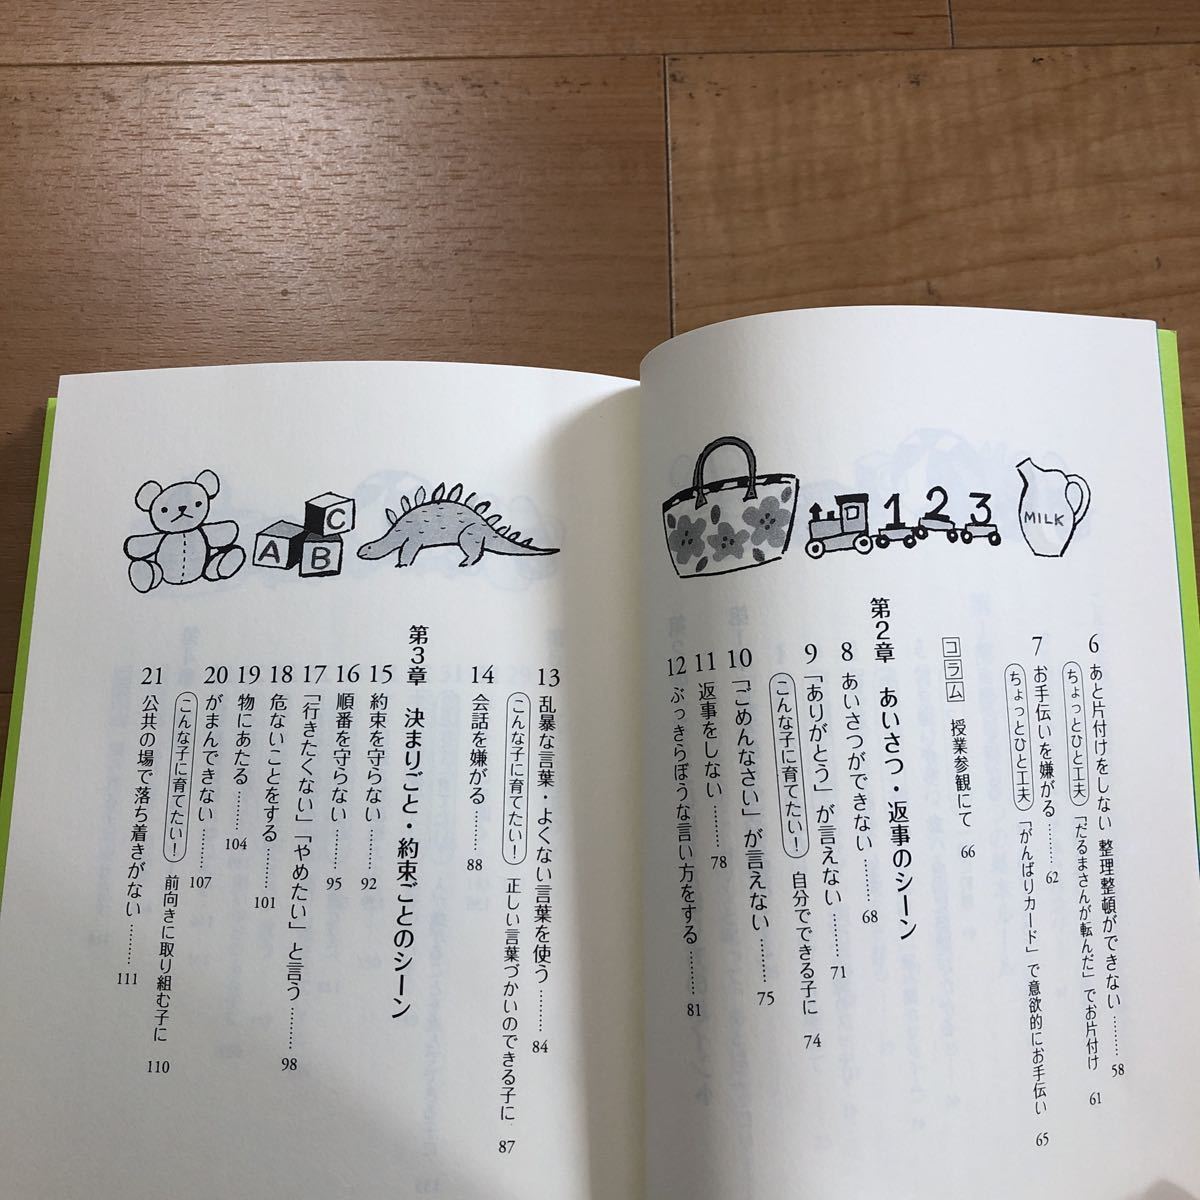 MILK
1 2 3
6 あと片付けをしない 整理整頓ができない……… 58
ちょっとひと工夫 「だるまさんが転んだ」でお片付け 61
7 お手伝いを嫌がる……… 62
ちょっとひと工夫 「がんばりカード」で意欲的にお手伝い 65
コラム 授業参観にて 66
第2章 あいさつ・返事のシーン
8 あいさつができない……… 68
9 「ありがとう」が言えない……… 71
こんな子に育てたい! 自分でできる子に 74
10 「ごめんなさい」が言えない……… 75
11 返事をしない……… 78
12 ぶっきらぼうな言い方をする……… 81
A B C
13 乱暴な言葉・よくない言葉を使う……… 84
こんな子に育てたい! 正しい言葉づかいのできる子に 87
14 会話を嫌がる……… 88
第3章 決まりごと・約束ごとのシーン
15 約束を守らない……… 92
16 順番を守らない……… 95
17 「行きたくない」「やめたい」と言う……… 98
18 危ないことをする……… 101
19 物にあたる……… 104
20 がまんできない……… 107
こんな子に育てたい! 前向きに取り組む子に 110
21 公共の場で落ち着きがない……… 111